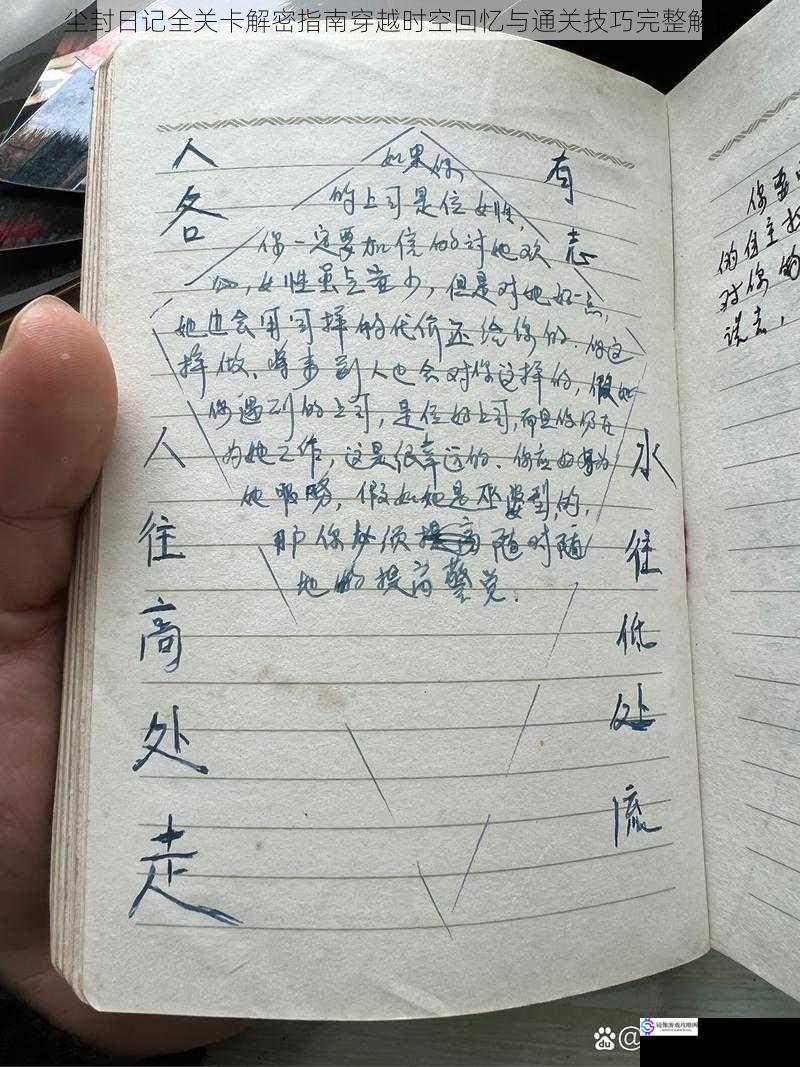 尘封日记全关卡解密指南穿越时空回忆与通关技巧完整解
人各
有志
如果你,
的上司是位女性,
你一定要加倍的讨她欢
心,女性虽占量少,但是对她好一点,
她也会用同样的代价还给你的.你这
样做、将来别人也会对你这样的,假如
你遇到的上司,是位好上司,而且你仍在
为她工作,这是很幸运的.你应好好为
她服务,假如她是巫婆型的,
那你必须随时随
地的提高警觉.
人往高处走
水往低处流
的自主
对你的
说去,
Bai du @
镜像游戏攻略网